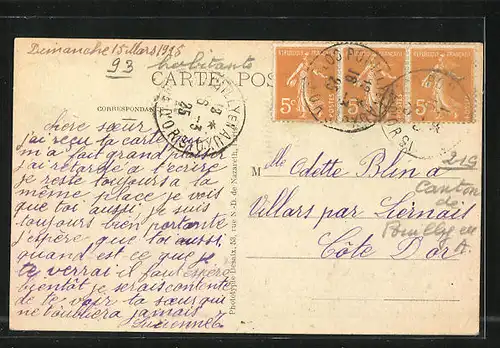 Dimanche 15 Mars 1925
habitants
93
CARTE POS
CORRESPONDANCE
chère sœur
j'ai reçu ta carte qui
m'a fait grand plaisir
j'ai retardé a t'écrire
je reste toujours a la
même place je vois
que toi aussi je suis
toujours bien portante
j'espère que toi aussi
quand est ce que je
te verrai il faut espéré
bientôt je serais contente
de te voir ta sœur qui
ne t'oubliera jamais
Lucienne
Phototypie Desaix, rue N.-D. de Nazareth,
5c 5c 5c
Mlle Odette Blin a
Villars par Liernais
Côte D'or
219
Canton
de
Pouilly en
A.